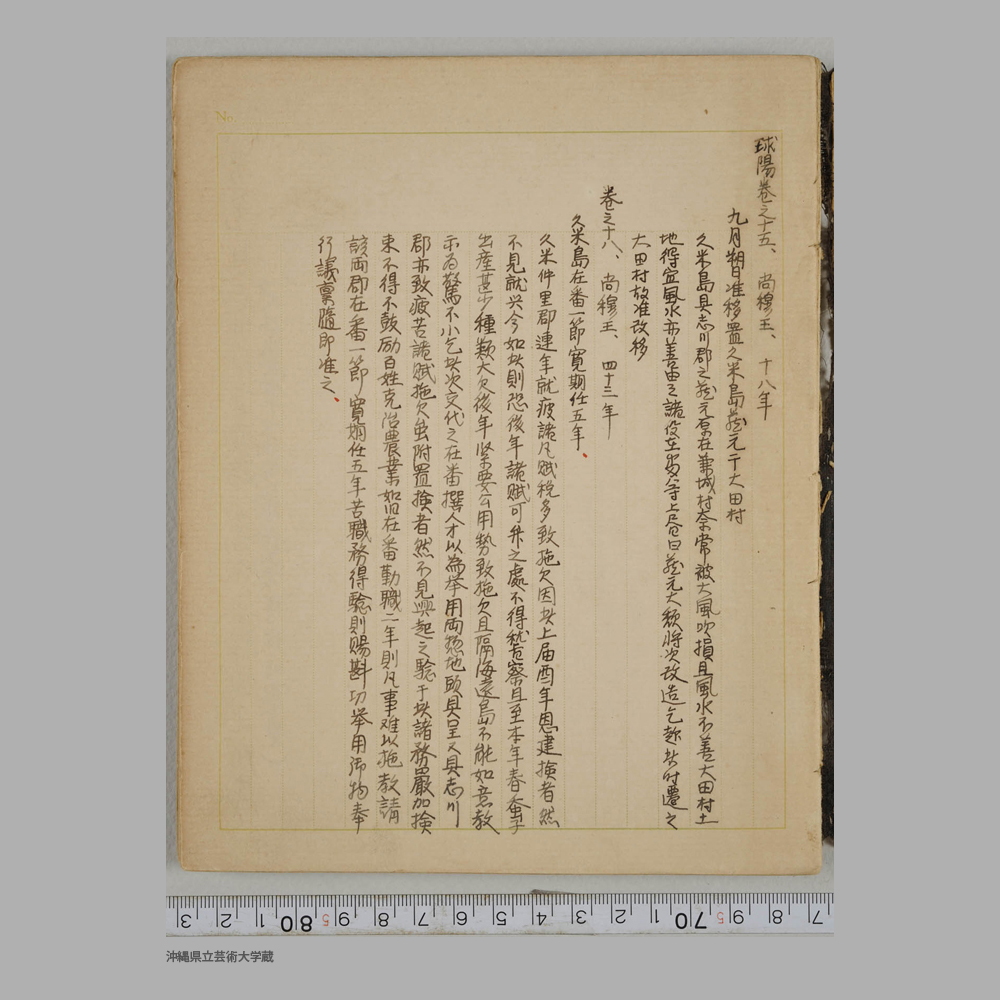 No.
球陽卷之十五、 尚穆王、 十八年
九月朔日准移置久米島蔵元于大田村
久米島具志川郡之蔵元原在兼城村奈常被大風吹損且風水不善大田村土
地得宜風水亦善由之諸役在番等上届曰蔵元大頽將次改造乞趁此时遷之
大田村故准改移
卷之十八、 尚穆王、 四十三年
久米島在番一節寛期任五年、
久米仲里郡連年就疲諸凡賦税多致拖欠因此上届酉年恩建撿者然
不見就兴今如此則恐後年諸賦可弁之處不得就
察且至本年春蚕子
出産甚少種類大欠後年緊要公用勢致拖欠且隔海遠島不能如意教
示為驚不小乞此次交代之在番撰人才以為举用両惣地頭具呈又具志川
郡亦致疲苦諸賦拖欠虫附置撿者然不見興起之驗于此諸務嚴加撿
束不得不鼓励百姓克治農業如旧在番勤職二年則凡事难以拖教請
該両郡在番一節寛期任五年苦職務得驗則賜斟功举用御物奉
行議稟隨即准之、
3 2 1 80 9 8 7 6 5 4 3 2 1 70 9 8 7
沖縄県立芸術大学蔵